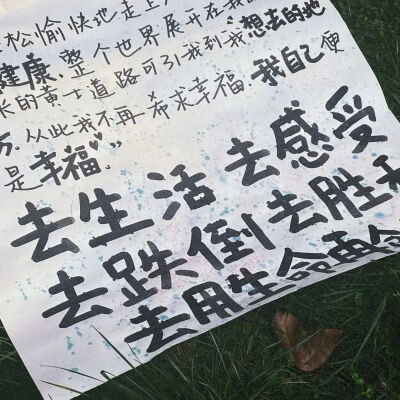 松愉快地走上
健康、整个世界展开在我
长的黄土道路可引我到我想去的地
方、从此我不再希求幸福、我自己便
是幸福。”
去生活 去感受
去跌倒 去胜利
去用生命再